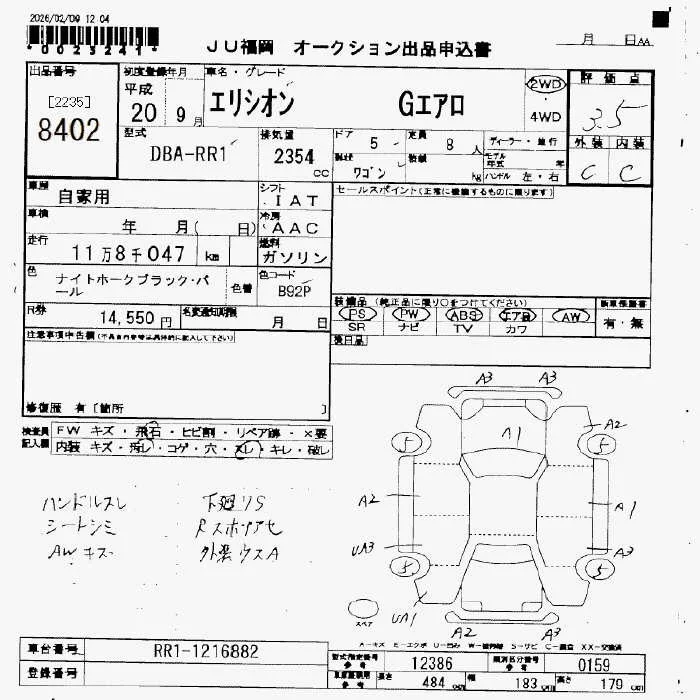 2026/02/09 12:04
*0023241*
JU福岡 オークション出品申込書
月 日 AA
出品番号
[2235]
8402
初度登録年月
平成
20 9月
車名・グレード
エリシオン Gエアロ
2WD
・
4WD
評価点
3.5
外装 内装
C C
型式
DBA-RR1
排気量
2354
cc
ドア 5
定員 8人
ディーラー・並行
モデル年式 年
形状 ワゴン
積載 kg
ハンドル 左・右
車歴
自家用
シフト
IAT
セールスポイント(正常に機能するものに限ります)
車検
年 月( 日)
冷房
AAC
走行
11万8千047 km
燃料
ガソリン
色
ナイトホークブラック・パール
色替
色コード
B92P
装備品 (純正品に限り○をつけてください)
PS PW ABS エアB AW
SR ナビ TV カワ
新車保証書
有・無
R券
14,550円
名変通知期限
月 日
後日品
注意事項申告欄(不具合内容等は具体的に記入して下さい)
修復歴 有〔箇所 〕
検査員記入欄
FW キズ・飛石・ヒビ割・リペア跡・×要
内装 キズ・汚レ・コゲ・穴・スレ・キレ・破レ
ハンドルスレ
シートシミ
AWキズ
下廻りS
Rスポリアセ
外装ウスA
A3 A3
A1
A2
5 5
A2
A1
UA3
A3
5 5
UA1
A2 A3
スペア
A-キズ E-エクボ U-凹み W-補修跡 S-サビ C-腐食 XX-交換済
車台番号
RR1-1216882
登録番号
型式指定番号
参考
12386
類別区分番号
参考
0159
車検証期間
参考
長さ 484 cm
幅 183 cm
高さ 179 cm